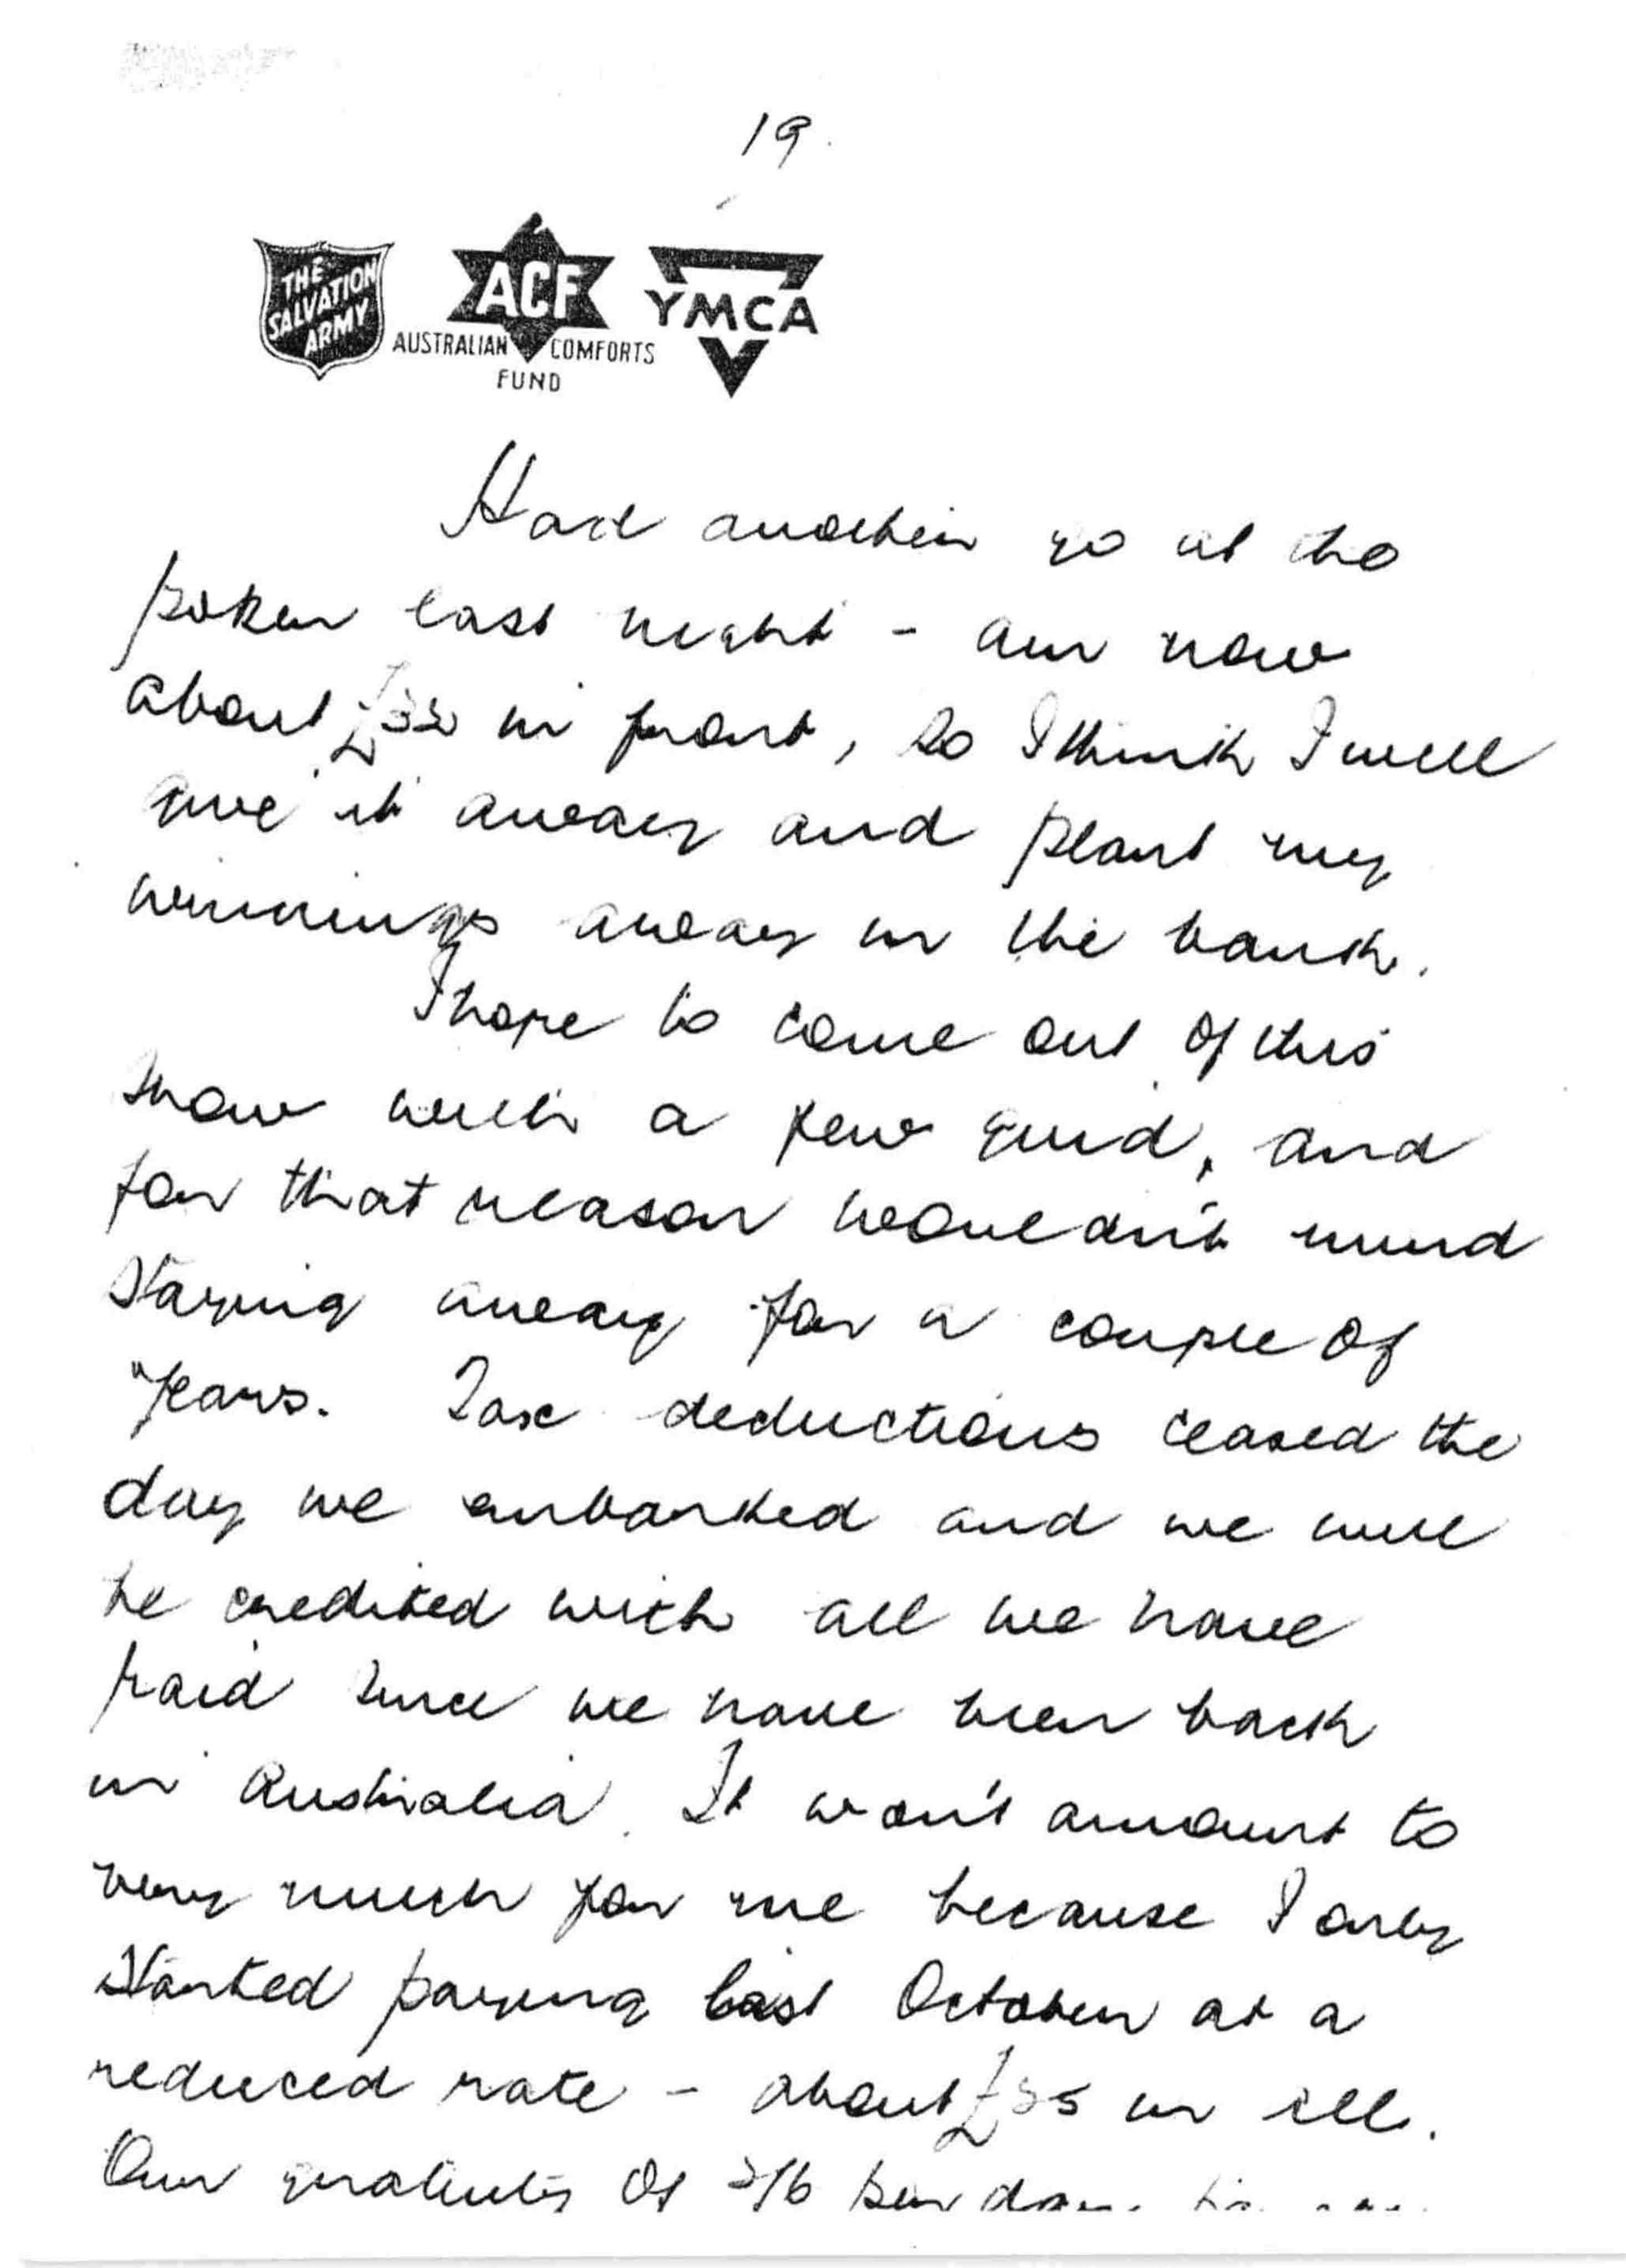 19.
THE
SALVATION
ARMY
ACF
AUSTRALIAN COMFORTS
FUND
YMCA
Had another go at the
poker last night - am now
about £32 in front, so I think I will
give it away and plant my
winnings away in the bank.
I hope to come out of this
show with a few quid, and
for that reason wouldn't mind
staying away for a couple of
years. Tax deductions ceased the
day we embarked and we will
be credited with all we have
paid since we have been back
in Australia. It won't amount to
very much for me because I only
started paying last October at a
reduced rate - about in all.
Our gratuity of per day